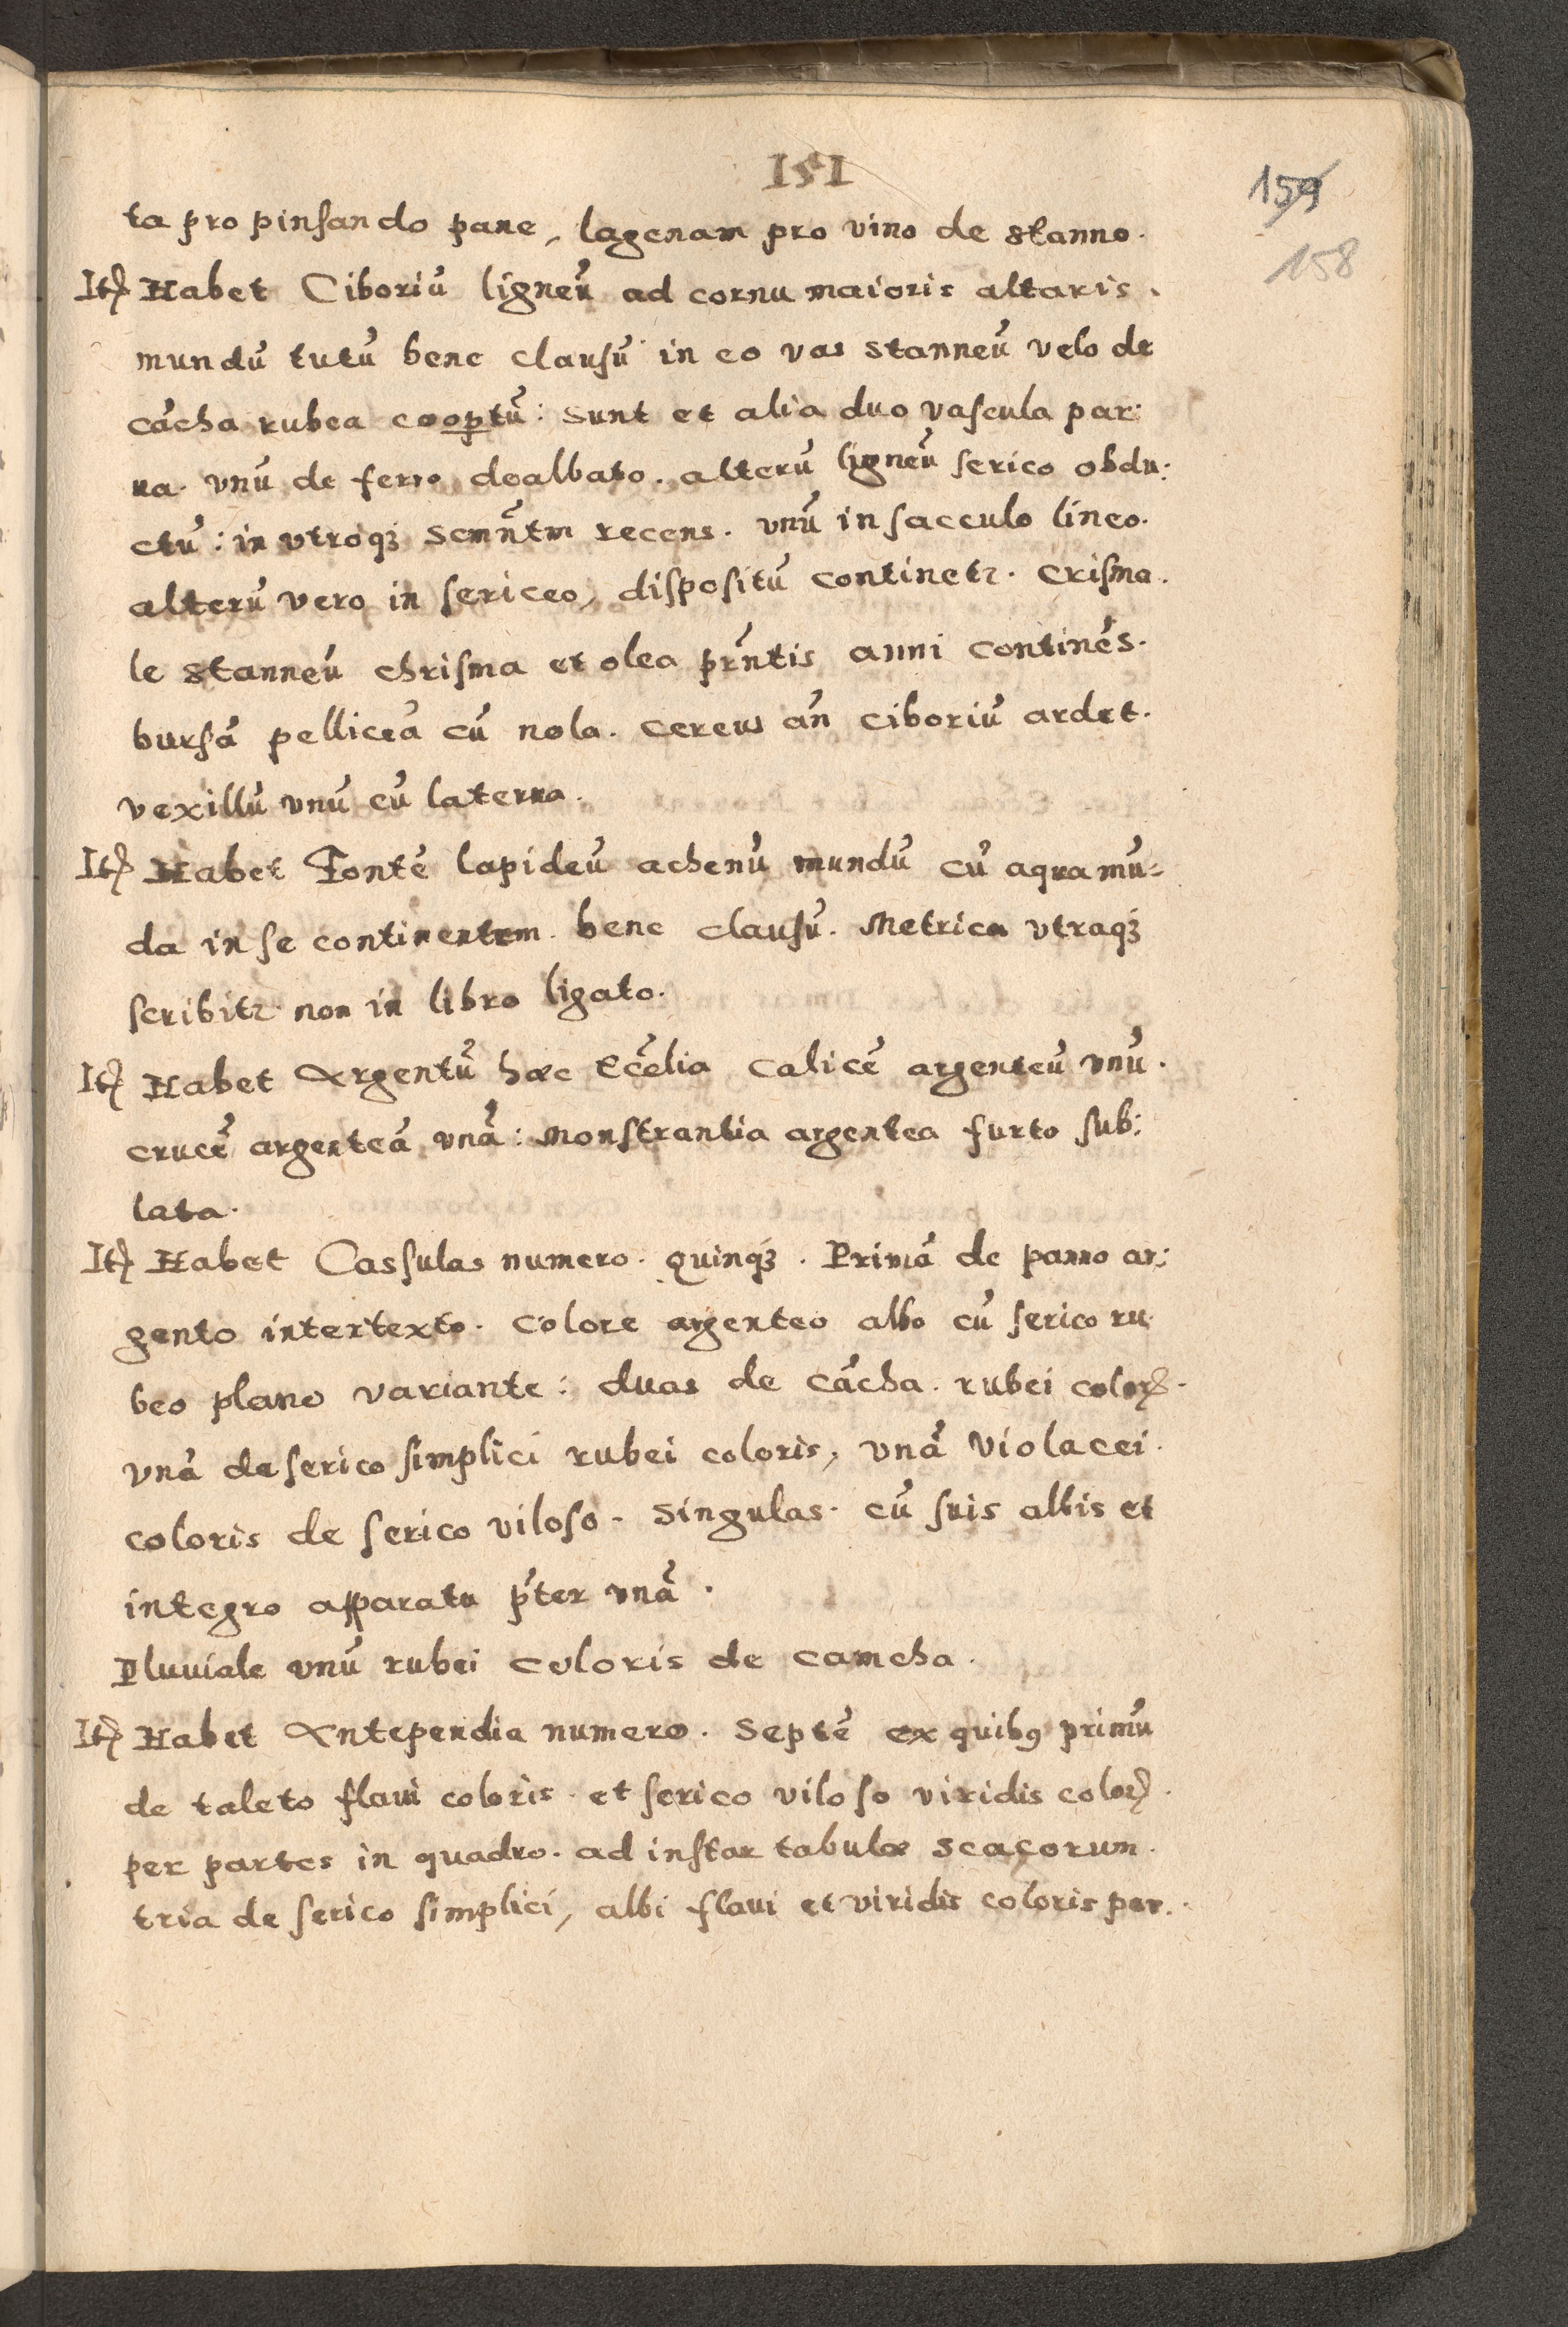 151
159
158
ta pro pinsando pane, lagenam pro vino de stanno.
Itꝫ Habet Ciboriū ligneū ad cornu maioris altaris.
mundū tutū bene clausū in eo vas stanneū velo de
cācha rubea coop̱tū: Sunt et alia duo vascula par:
ua. vnū de ferro dealbato. alterū ligneū serico obdu:
ctū: in vtroqꝫ Scmn̄tm recens. vnū in sacculo lineo.
alterū vero in sericeo, dispositū continetr. Crisma.
le stanneū chrisma et olea prn̄tis anni continēs.
bursā pelliceā cū nola. Cereus an̄ ciboriū ardet.
vexillū vnū cū laterna.
Itꝫ Habet Fontē lapideū achenū mundū cū aqua mū-
da in se continentem. bene clausū. Metrica vtraqꝫ
scribitr non in libro ligato.
Itꝫ Habet Argentū hæc Eccēlia Calicē argenteū vnū.
crucē argenteā vnā: Monstrantia argentea furto sub:
lata.
Itꝫ Habet Cassulas numero. Quinqꝫ. Primā de panno ar:
gento intertexto. Colore argenteo albo cū serico ru
beo plano variante: duas de cācha. rubei colorꝭ.
vnā de serico simplici rubei coloris, vnā violacei.
coloris de serico viloso. Singulas. cū suis albis et
integro apparatu p̄ter vnā.
Pluuiale vnū rubei coloris de camcha.
Itꝫ Habet Antependia numero. Septē ex quibꝰ primū
de taleto flaui coloris. et serico viloso viridis colorꝭ.
per partes in quadro. ad instar tabulæ scacorum.
tria de serico simplici, albi flaui et viridis coloris per.